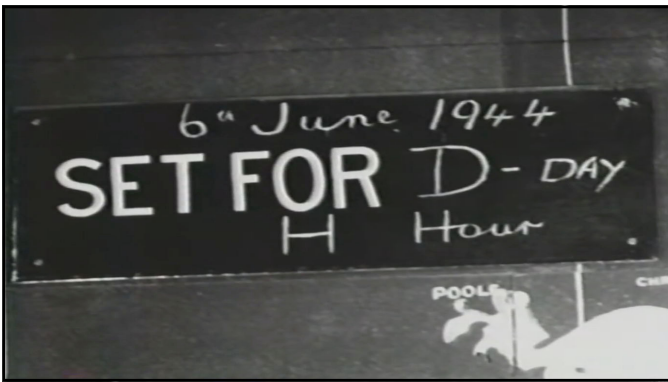 6th June 1944
SET FOR D-DAY
H Hour
POOLE
CHR